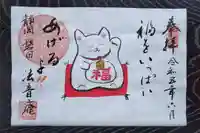 奉拝
令和五年六月
福をいっぱい
福
あげるよ
静岡 磐田
法音庵